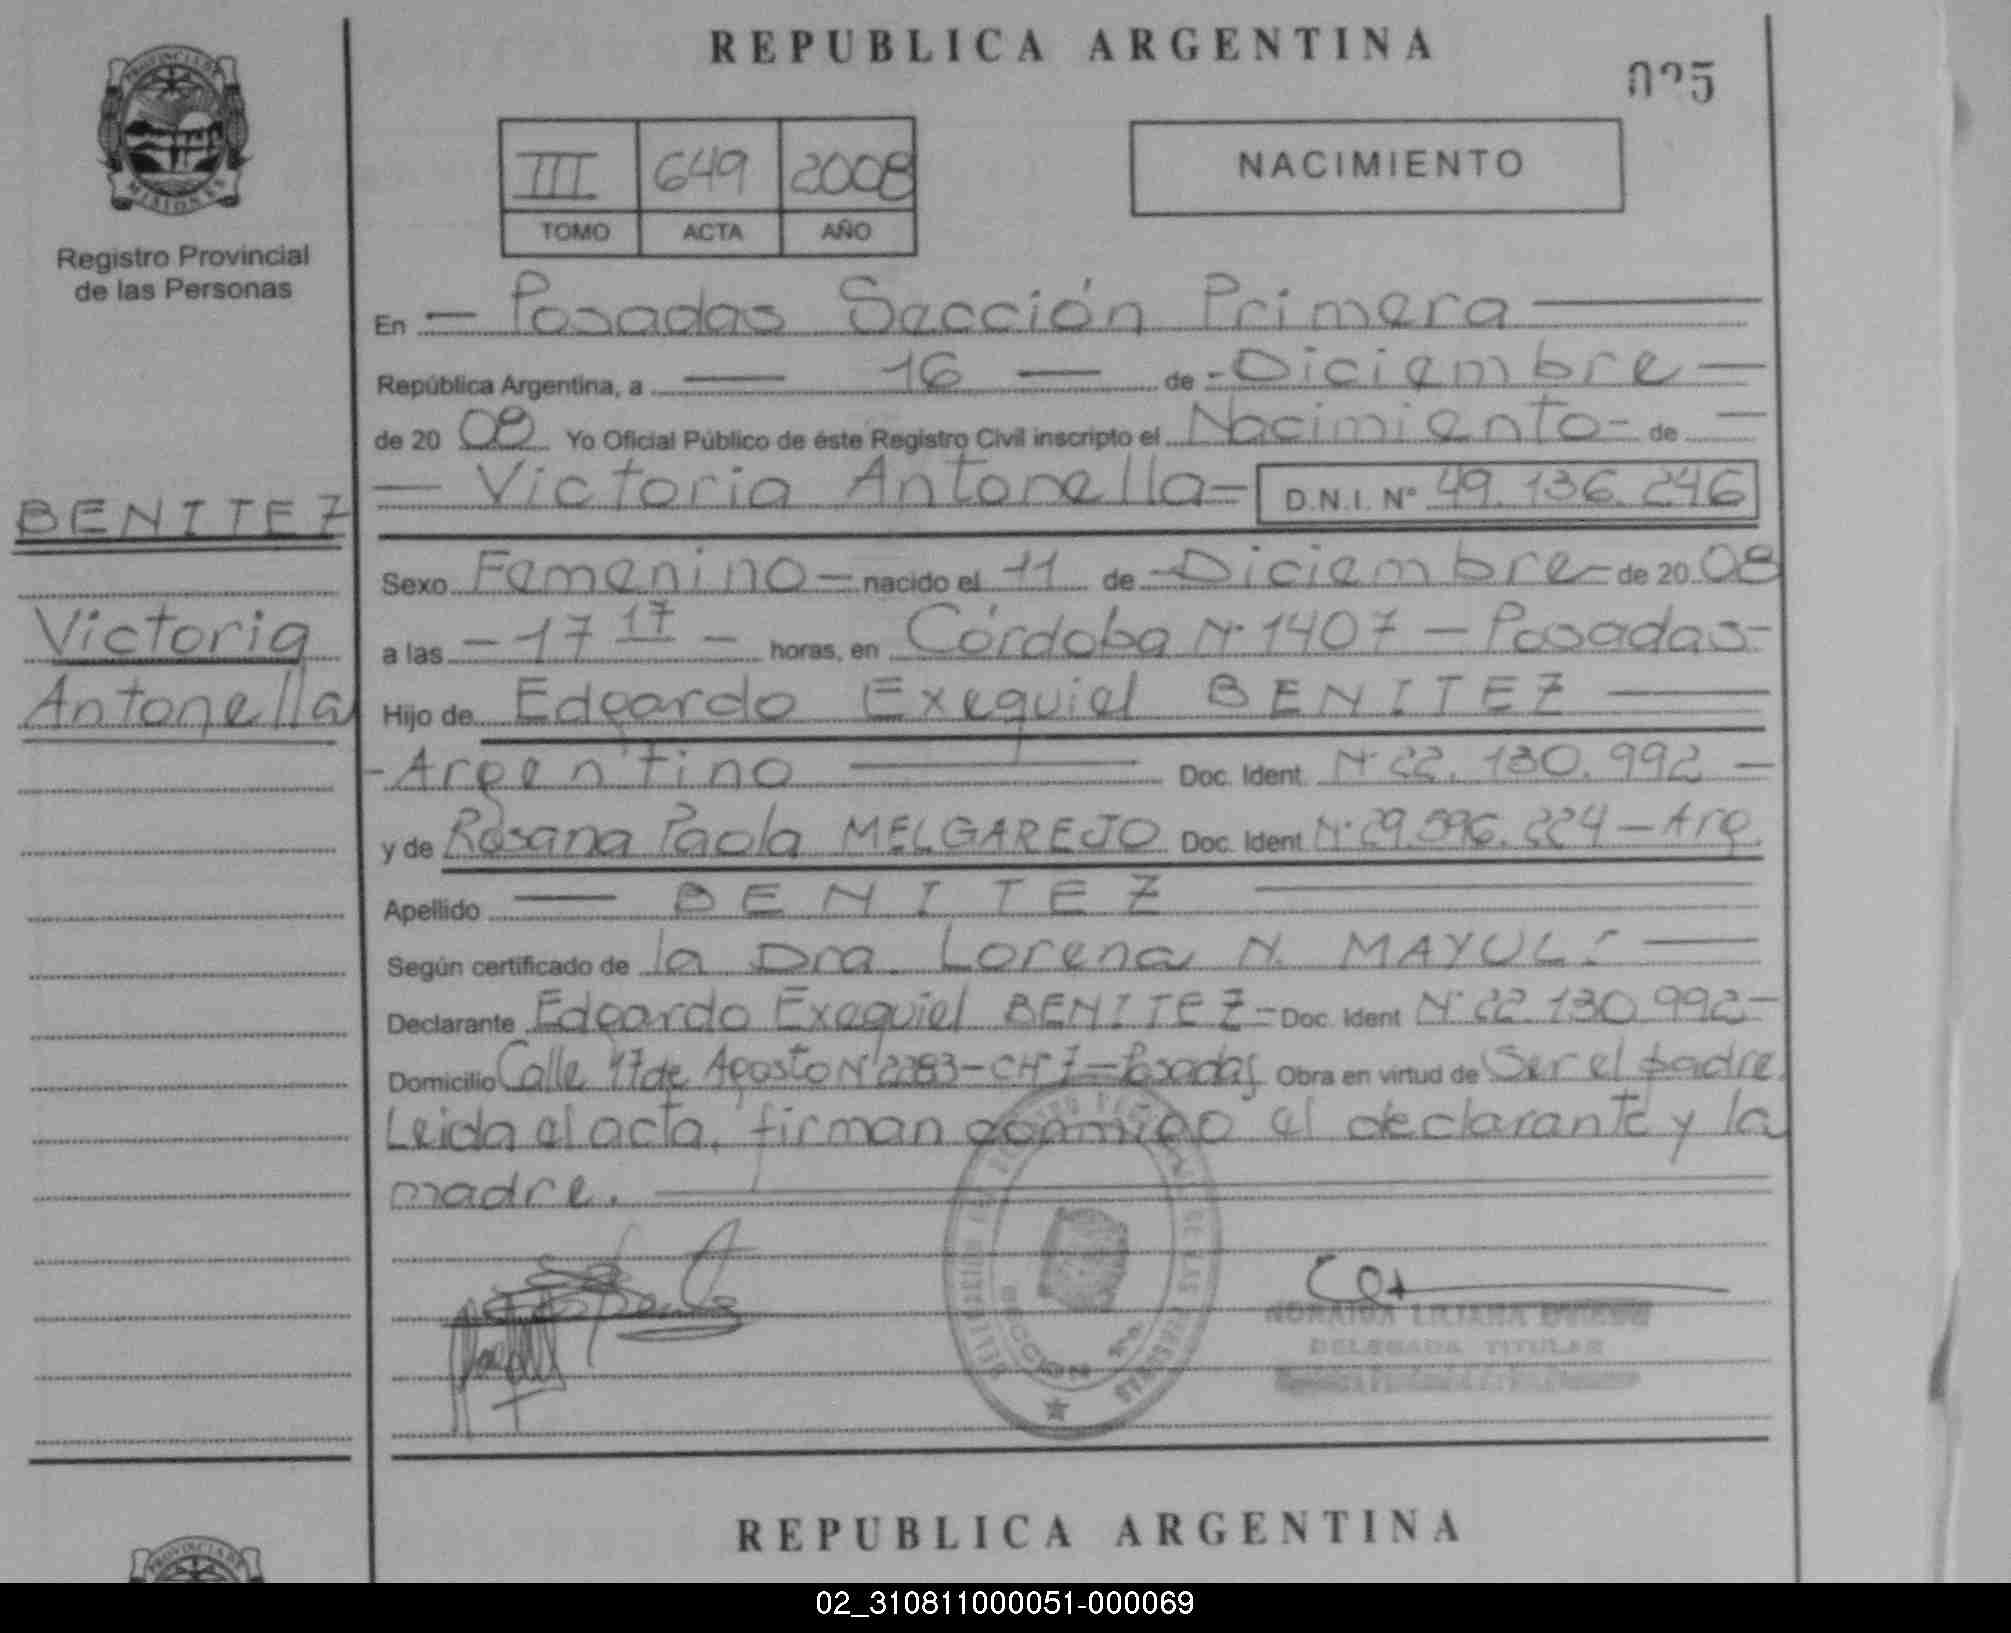 REPUBLICA ARGENTINA
025
PROVINCIA DE
MISIONES
Registro Provincial
de las Personas
III 649 2008
TOMO ACTA AÑO
NACIMIENTO
En — Posadas Sección Primera
República Argentina, a — 16 — de - Diciembre —
de 20 08 Yo Oficial Público de éste Registro Civil inscripto el Nacimiento - de —
— Victoria Antonella — D.N.I. N° 49.136.246
BENITEZ
Victoria
Antonella
Sexo Femenino — nacido el 11 de - Diciembre - de 20 08
a las - 17 17 - horas, en Córdoba N° 1407 - Posadas -
Hijo de Edgardo Exequiel BENITEZ
- Argentino — Doc. Ident. N° 22.130.992 —
y de Rosana Paola MELGAREJO Doc. Ident N° 29.596.224 - Arg.
Apellido — BENITEZ
Según certificado de la Dra. Lorena N. MAYUL.-
Declarante Edgardo Exequiel BENITEZ - Doc. Ident N° 22.130.992 -
Domicilio Calle 17 de Agosto N° 2283 - CH 7 - Posadas Obra en virtud de Ser el padre.
Leida el acta, firman conmigo el declarante y la
madre.
SECCION 1ra.
LILIANA
DELEGADA TITULAR
REPUBLICA ARGENTINA
PROVINCIA DE
02_310811000051-000069